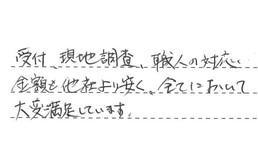 受付、現地調査、職人の対応、
金額も他社より安く、全てにおいて
大変満足しています。